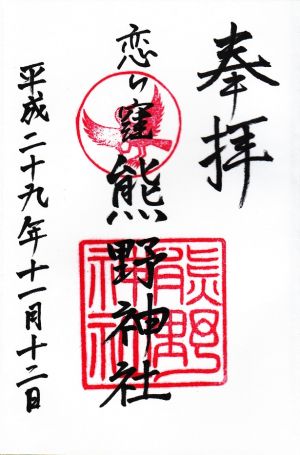 奉拝
恋ヶ窪熊野神社
熊野
神社
平成二十九年十一月十二日